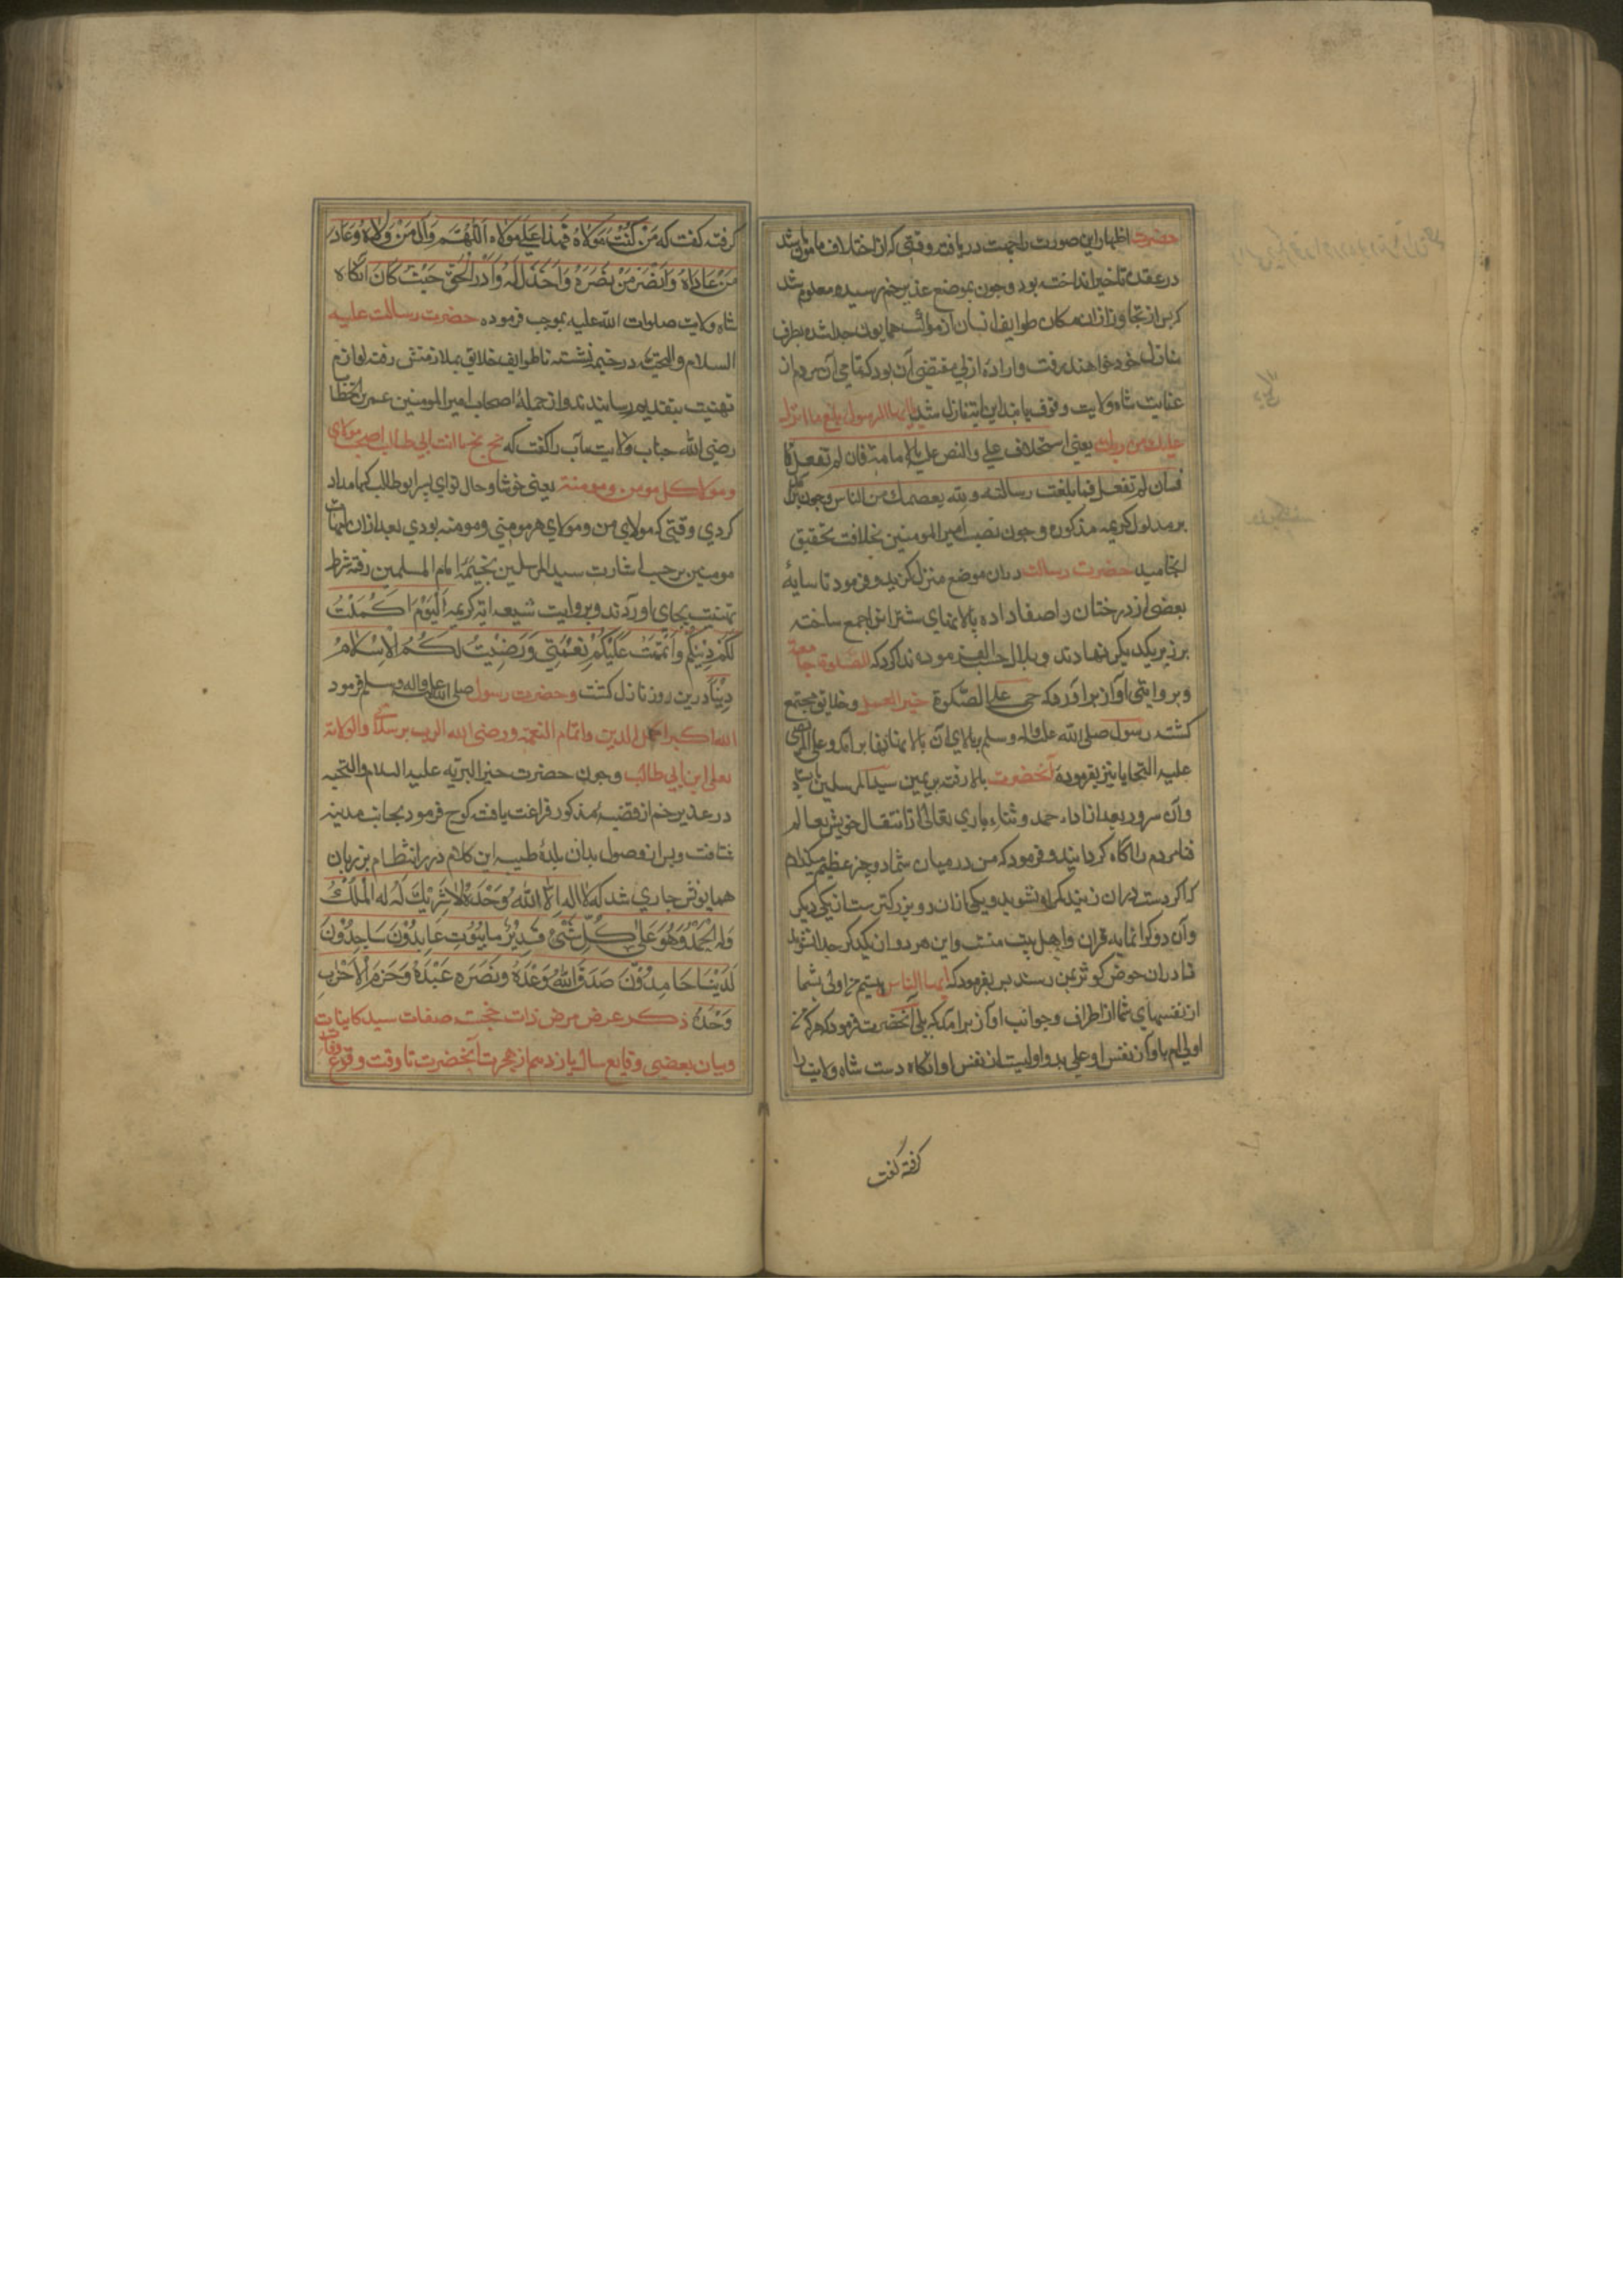 حضرت اظهار این صورت را جهت دریافت وقتی که از اختلاف مامون باشد
در عقده تاخیر انداخته بود و چون بموضع غدیر خم رسیده معلوم شد
که پس از تجاوز از ان مکان طوایف انسان از مواکب همایون جدا شده بطرف
منازل خود خواهند رفت و اراده ازلی مقتضی آن بود که تمامی آن مردم از
عنایت شاه ولایت وقوف یابند این ایت نازل شد یا ایها الرسول بلغ ما انزل
علیك من ربك یعنی استخلاف علی والنص علیه بالامامته فان لم تفعل فا
فسان لم تفعل فما بلغت رسالته و الله یعصمك من الناس و چون
بر مدلول کریمه مذکوره وجون نصب امیر المومنین بخلافت بتحقیق
انجامید حضرت رسالت دران موضع منزل کزید و فرمود تا سایهٔ
بعضی از درختان را صفا داده پالانهای شتران را جمع ساخته
بر زبر یکدیکر نهادند و بلال حسب الفرموده ندا کرد که الصلوة جامعة
و بروایتی آواز براورد که حی علی الصلوة خیر العمل و خلایق مجتمع
کشتند رسول صلی الله علیه واله وسلم ببالای آن پالانها برآمد و علی المرتضی
علیه التحایا نیز بفرمودهٔ آنحضرت بالا رفته بر یمین سید المرسلین بایستاد
وآن سرور بعد از اداء حمد و ثناء باری تعالی از انتقال خویش بعالم
بقا مردم را اکاه کردانید و فرمود که من در میان شما دو چیز عظیم میکذارم
که اکر دست دران زنید کمراه نشوید و یکی ازان دو بزرکتر ست از یکی دیکر
وآن دو کرانمایه قران و اهل بیت منست و این هر دو از یکدیکر جدا نشوند
تا دران حوض کوثر بمن رسند پس بفرمود که ایها الناس نیستم من اولی بشما
از نفسهای شما از اطراف و جوانب آواز برامد که بلی آنحضرت فرمود که هر که من
اولی ام باو از نفس او علی بدو اولیست از نفس او انکاه دست شاه ولایت را
کرفته کفت
کرفته کفت که من کنت مولاه فهذا علی مولاه اللهم وال من والاه وعاد
من عاداه وانصر من نصره واخذل من خذله وادر الحق حیث کان انکاه
شاه ولایت صلوات الله علیه بموجب فرموده حضرت رسالت علیه
السلام والتحیة در خیمه نشسته تا طوایف خلایق بملازمتش رفته لوازم
تهنیت بتقدیم رسانیدند و از جملهٔ اصحاب امیر المومنین عمر بن الخطاب
رضی الله جناب ولایت مآب را کفت که بخ بخ یا ابن ابی طالب اصبحت مولای
ومولا کل مومن و مومنة یعنی خوشا وحال تو ای پسر ابو طالب که بامداد
کردی وقتی که مولای من و مولای هر مومنی و مومنه بودی بعد ازان امهات
مومنین بر حسب اشارت سید المرسلین بخیمهٔ امام المسلمین رفته شرط
تهنیت بجای اوردند و بروایت شیعه ایه کریمه الیوم اکملت
لکم دینکم واتممت علیکم نعمتی ورضیت لکم الاسلام
دینا درین روز نازل کشت و حضرت رسول صلی الله علیه واله وسلم فرمود
الله اکبر اکمل الدین واتمام النعمة ورضی الله الرب برسالتی والولایة
بعلی ابن ابی طالب و چون حضرت خیر البریه علیه السلام والتحیه
در غدیر خم از قضیهٔ مذکور فراغت یافت کوچ فرمود بجانب مدینه
شتافت و پس از وصول بدان بلدهٔ طیبه این کلام درر انتظام بر زبان
همایونش جاری شد که لا اله الا الله وحده لا شریك له له الملك
وله الحمد وهو علی کل شئ قدیر عابدون ساجدون
لدینا حامدون صدق الله وعده ونصره عبده وحزم الاحزاب
وحده ذکر عرض مرض ذات خجسته صفات سید کاینات
و بیان بعضی وقایع سال یازدهم از هجرت آنحضرت تا وقت وقوع وفات